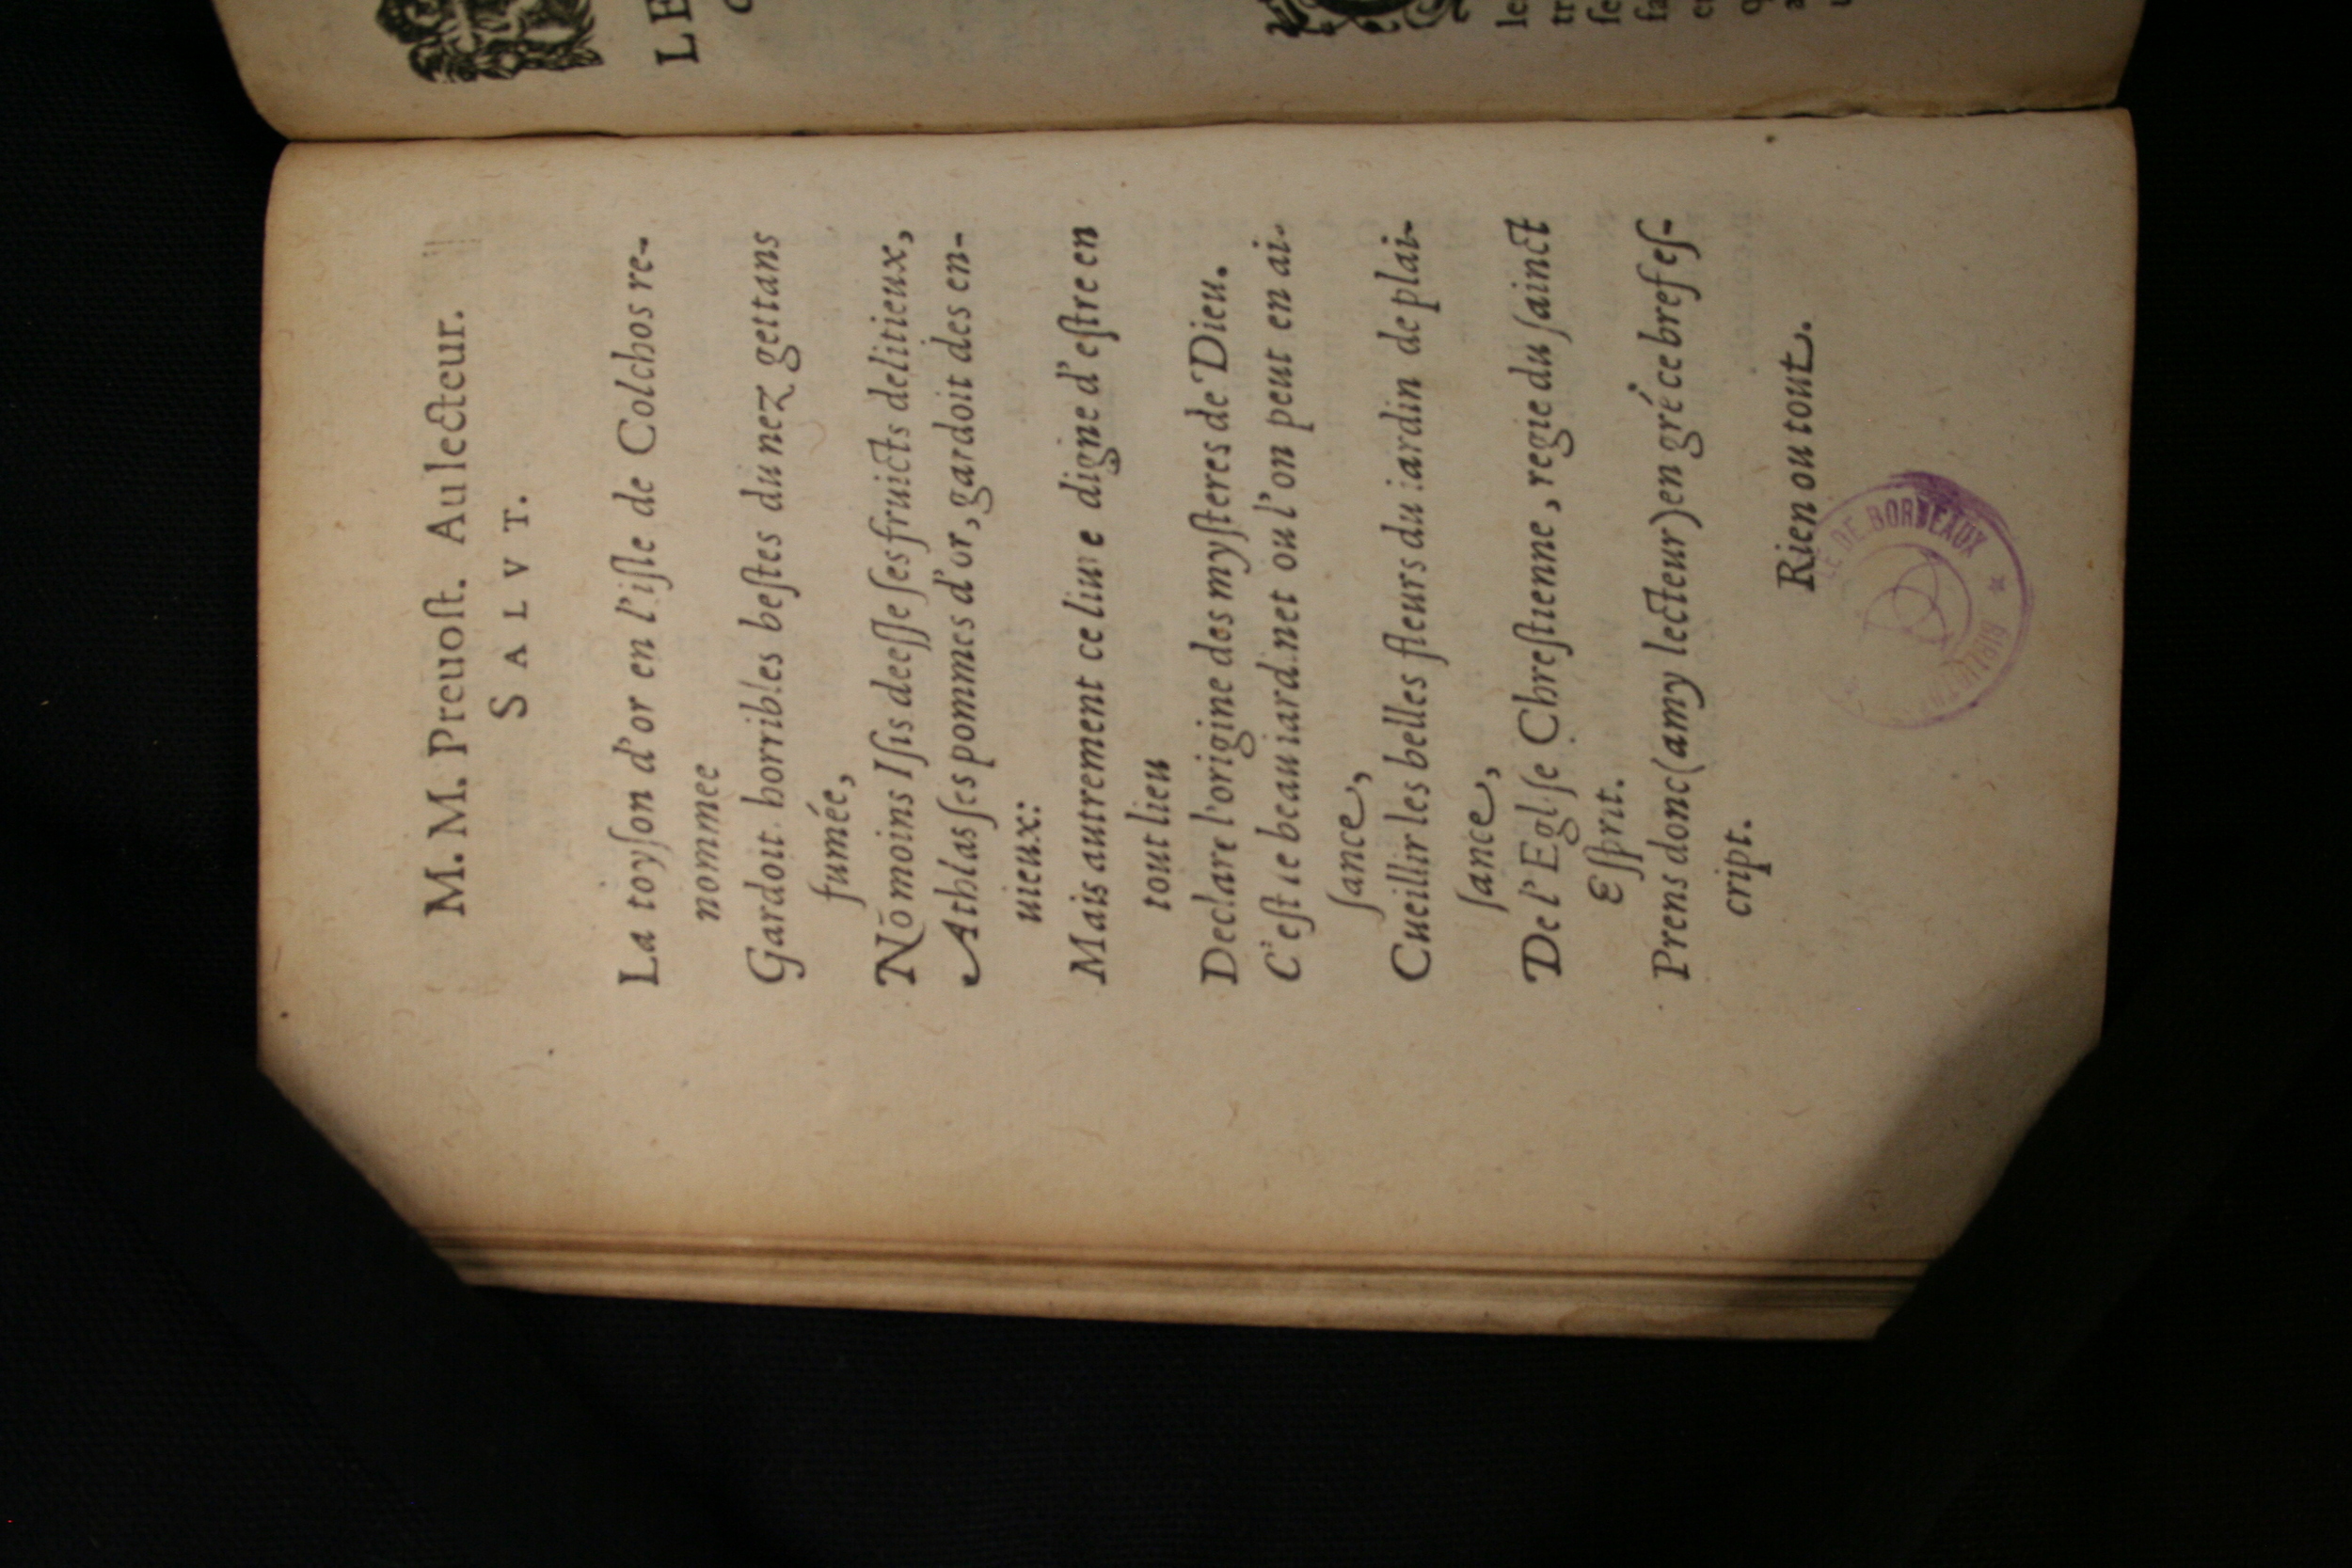 M. M. Preuoſt. Au lecteur.
SALVT.
La toyſon d'or en l'iſle de Colchos re-
nommee
Gardoit horribles beſtes du nez gettans
fumée,
Nōmoins Iſis deeſſe ſes fruicts delitieux,
Athlas ſes pommes d'or, gardoit des en-
uieux:
Mais autrement ce liure digne d'eſtre en
tout lieu
Declare l'origine des myſteres de Dieu.
C'eſt le beau iardinet ou l'on peut en ai-
ſance,
Cueillir les belles fleurs du iardin de plai-
ſance,
De l'Egliſe Chreſtienne, regie du ſainct
Eſprit.
Prens donc (amy lecteur) en gré ce bref eſ-
cript.
Rien ou tout.
DE BORDEAUX
LE